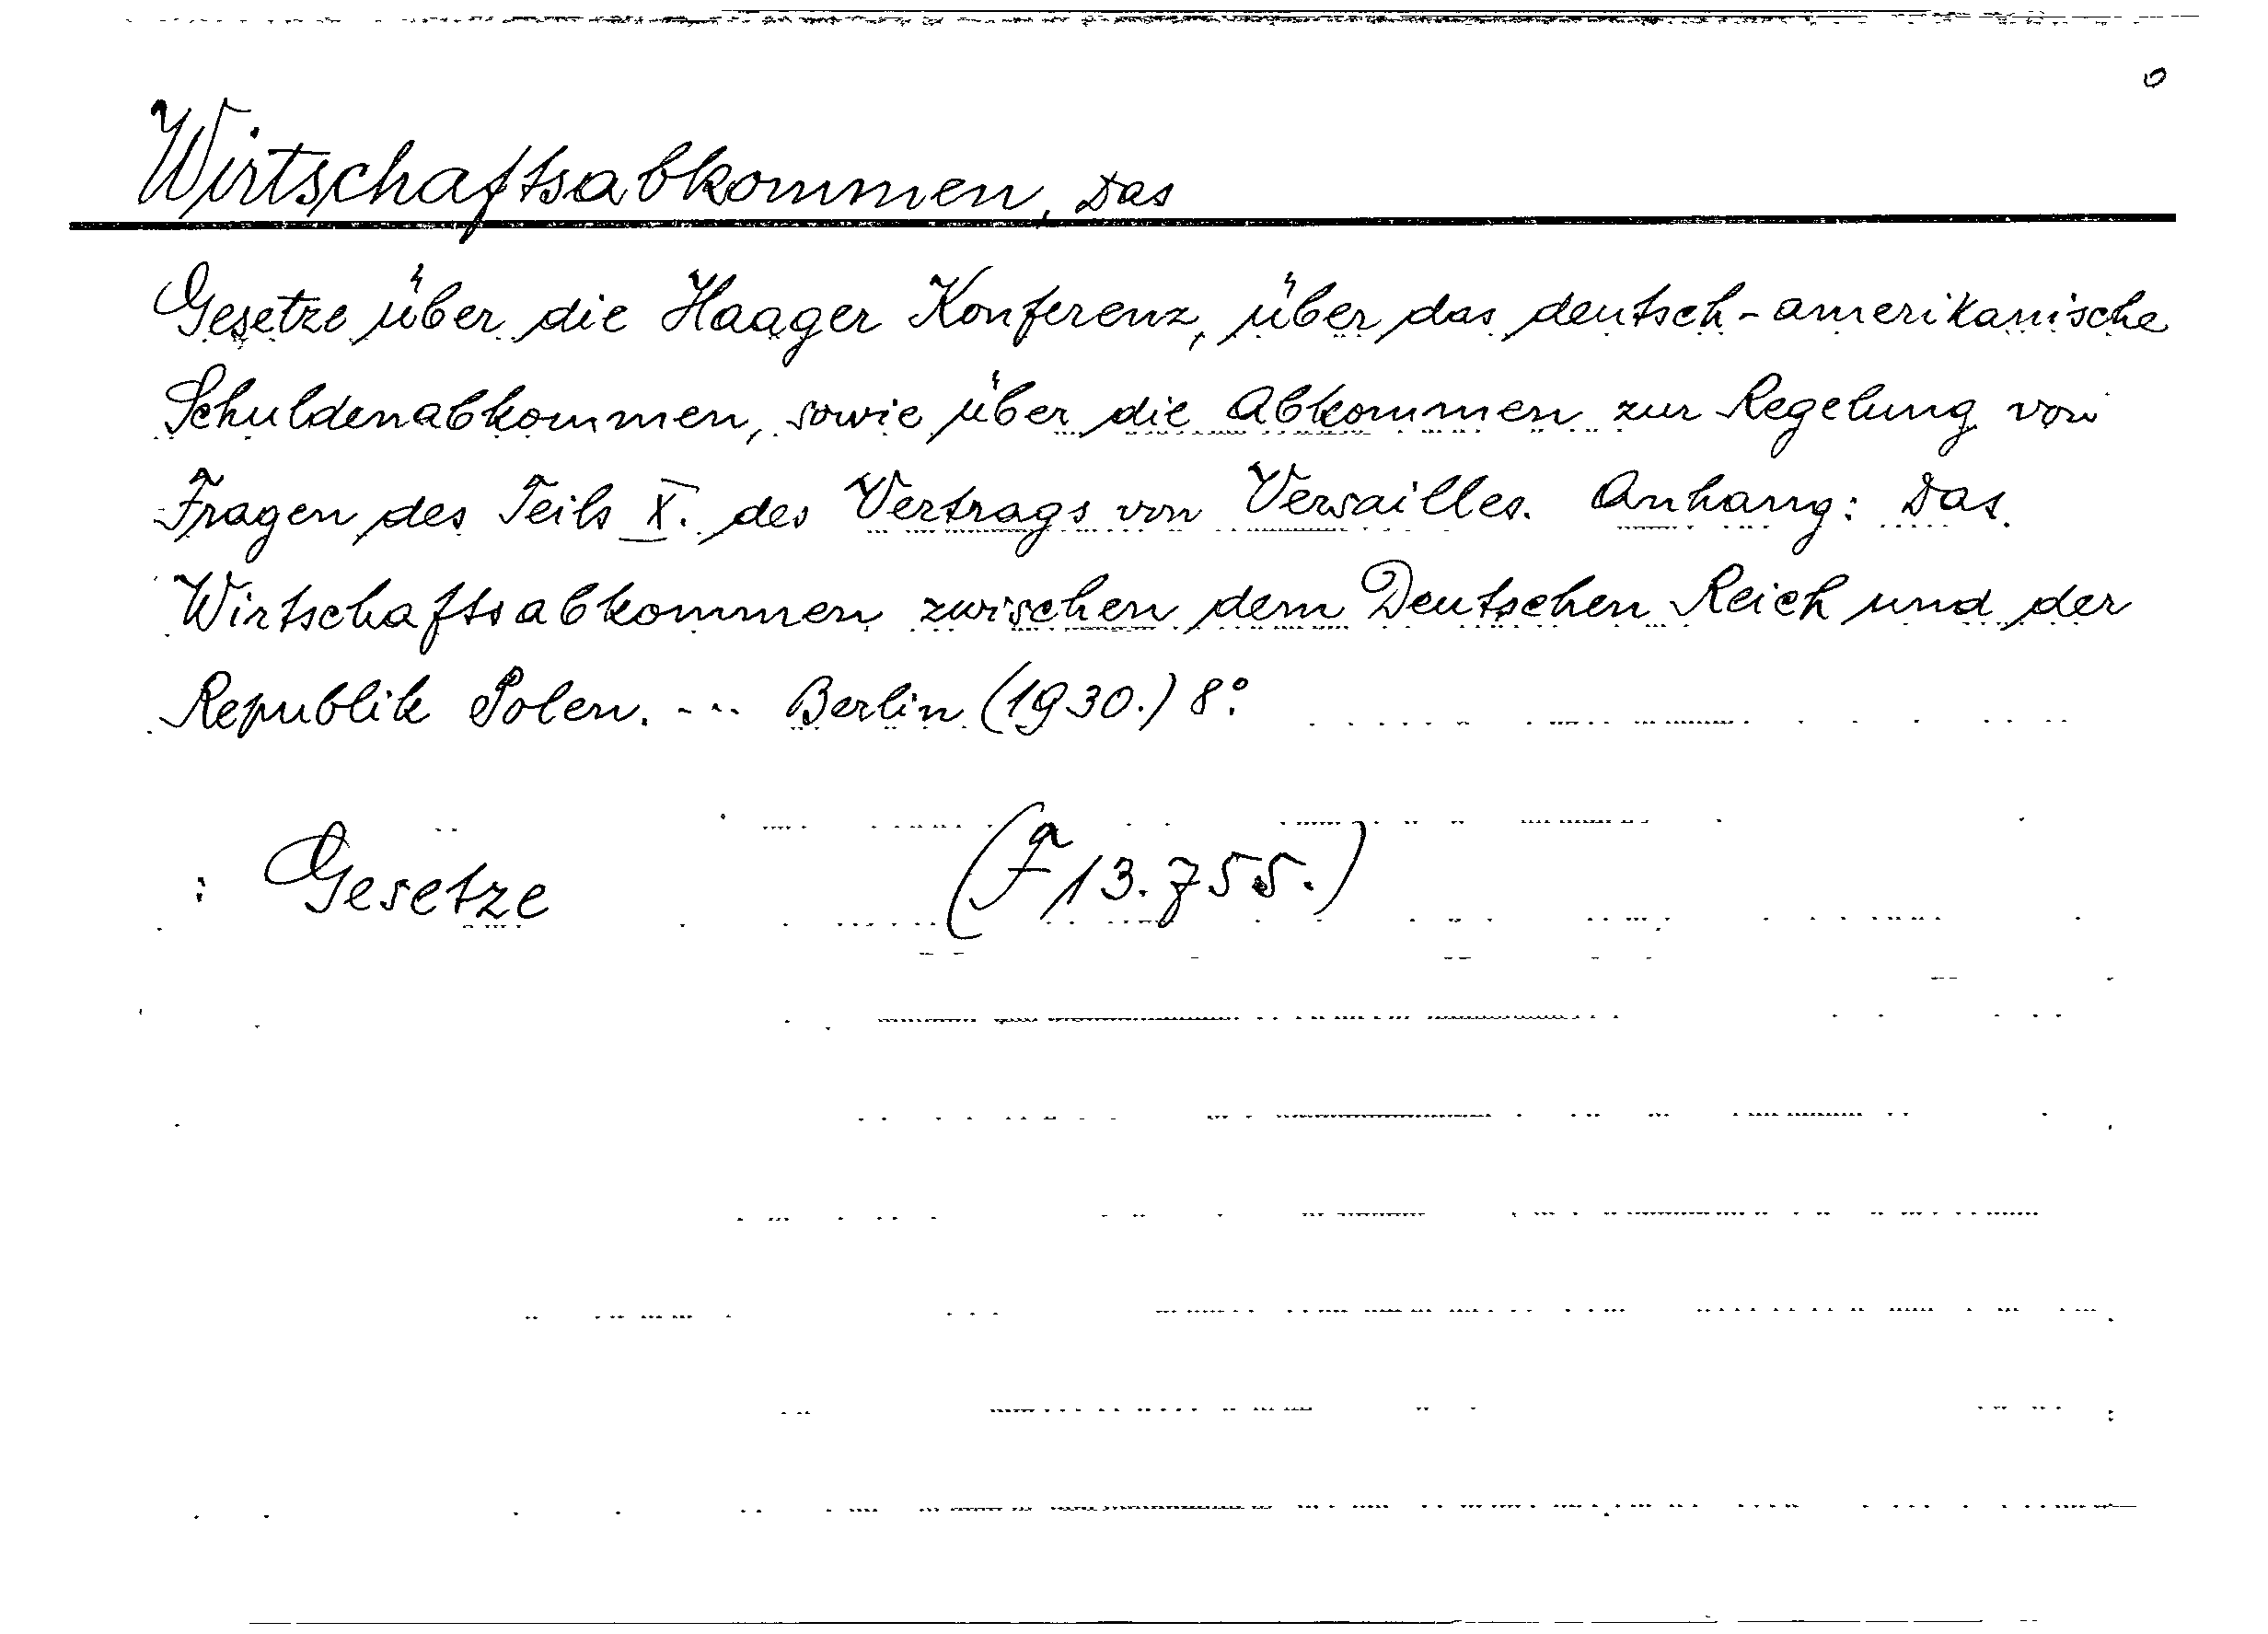 o
Wirtschaftsabkommen, Das
Gesetze über die Haager Konferenz, über das deutsch-amerikanische
Schuldenabkommen, sowie über die Abkommen zur Regelung von
Fragen des Teils X. des Vertrags von Versailles. Anhang: Das
Wirtschaftsabkommen zwischen dem Deutschen Reich und der
Republik Polen. - .. Berlin (1930.) 8°.
: Gesetze (F 13.755.)